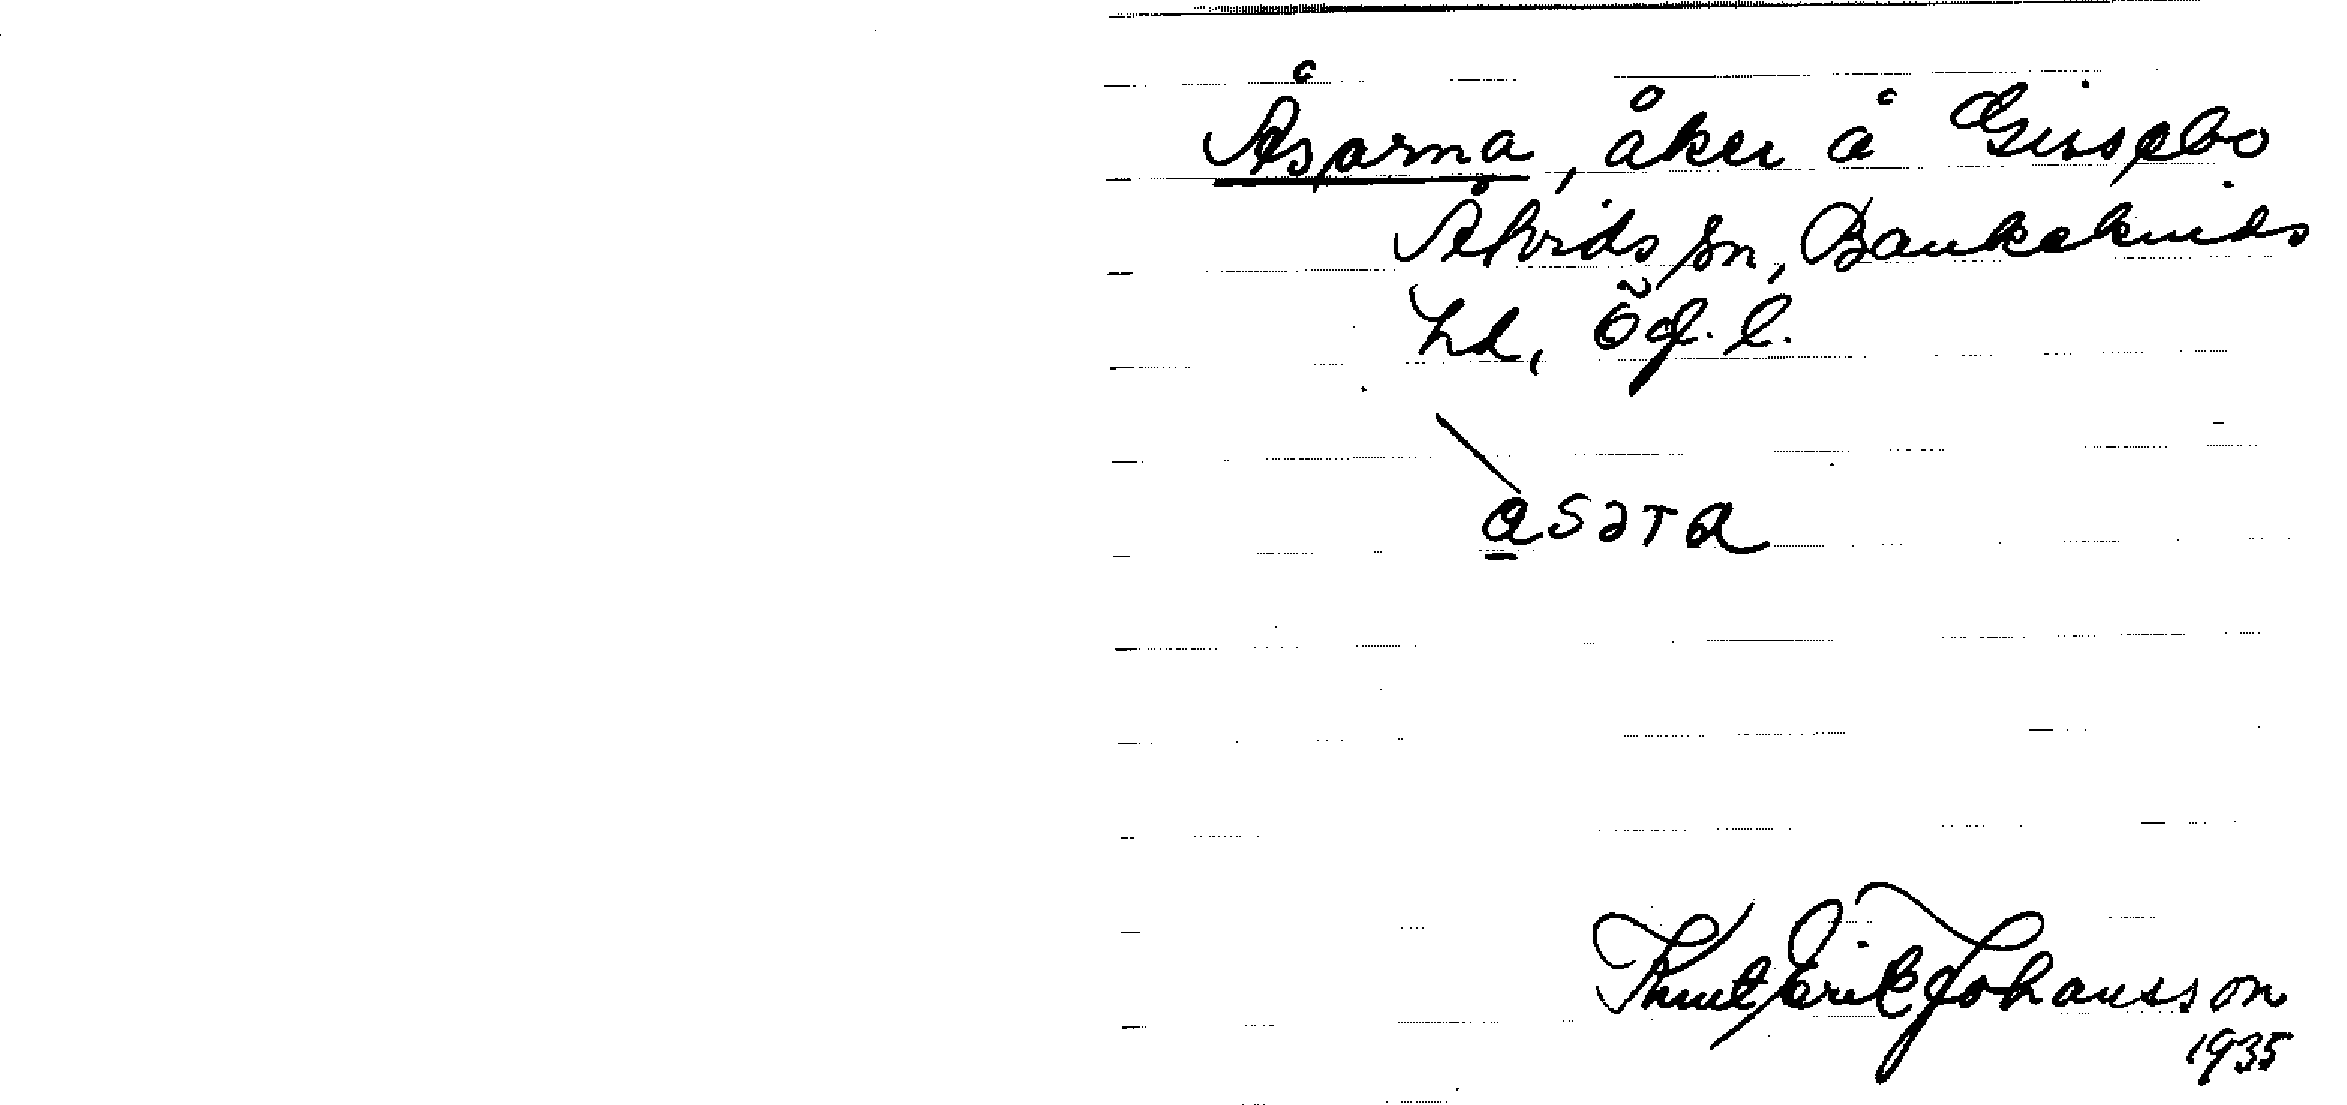 Åsarna, åker å Gissebo
Åtvids sn, Bankekinds
hd, Ög. l.
asəта
Knut Erik Johansson
1935